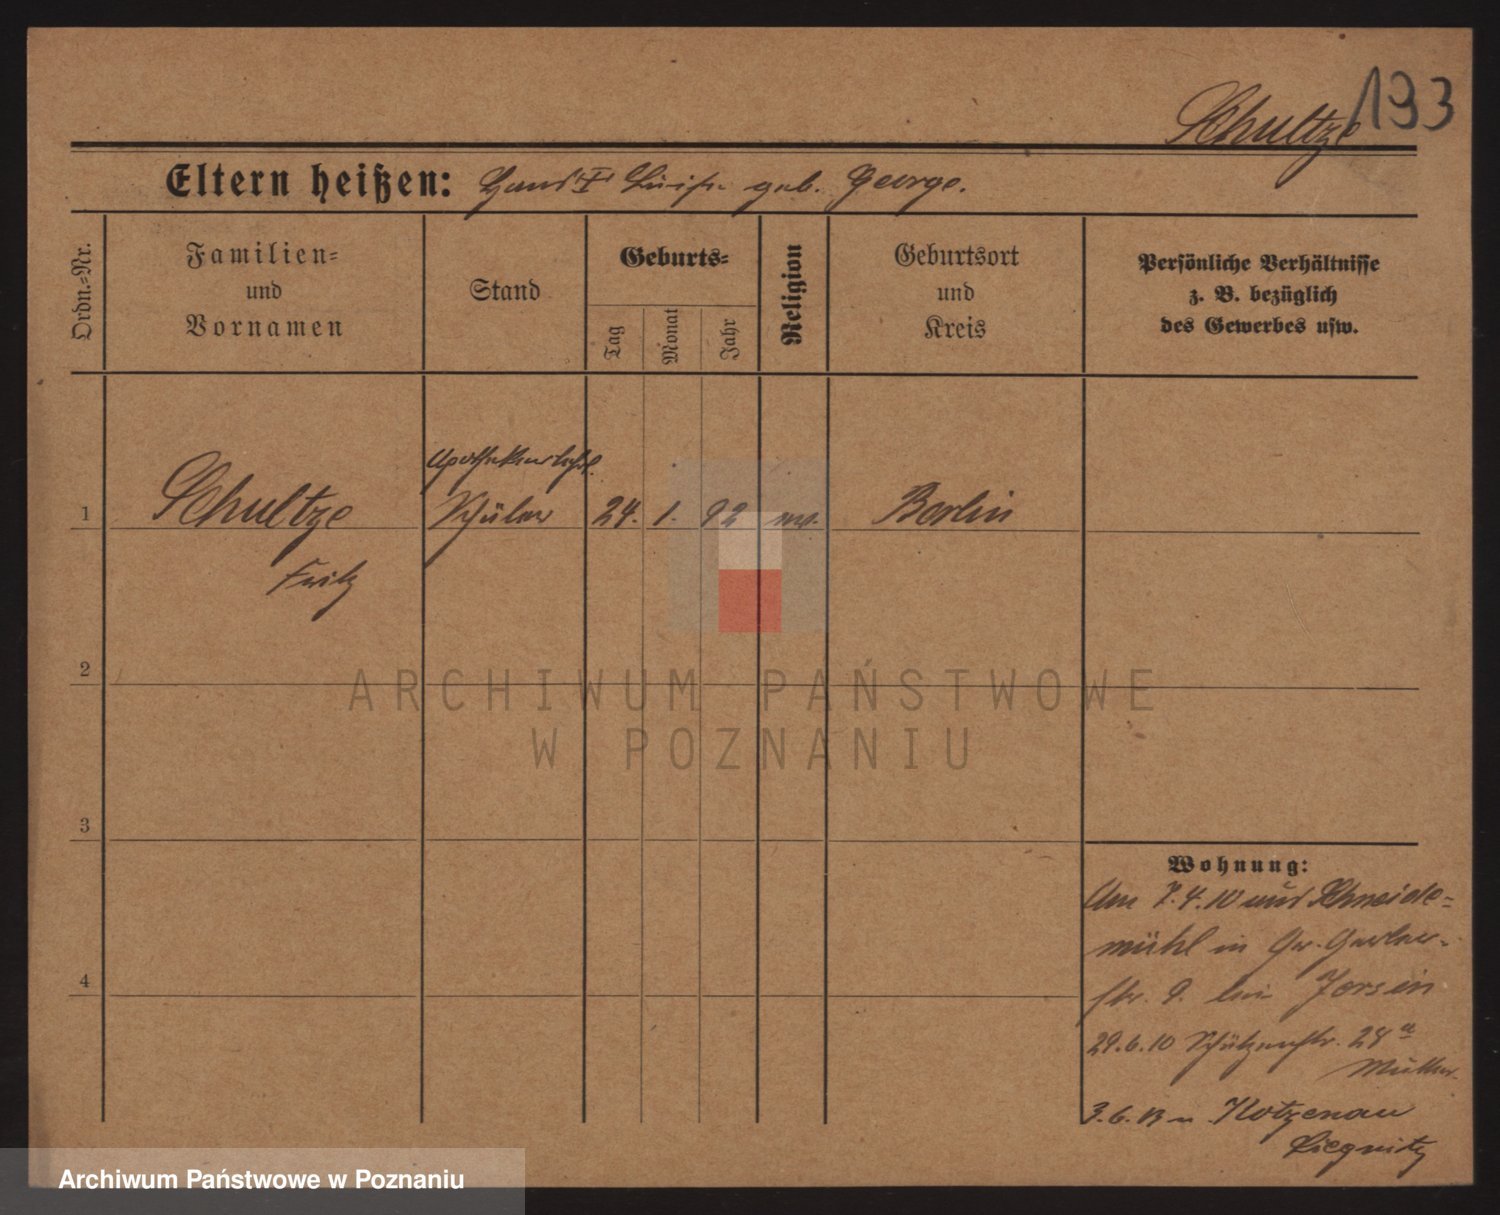 193
Schultze
Eltern heißen: Hans † Luise geb. George.
Ordn.-Nr.
Familien-
und
Vornamen
Stand
Geburts-
Tag
Monat
Jahr
Religion
Geburtsort
und
Kreis
Persönliche Verhältnisse
z. B. bezüglich
des Gewerbes usw.
Apothekerlehrl.
1 Schultze Schüler 24. 1. 92 ev. Berlin
Fritz
2
3
4
Wohnung:
Am 7.4.10 aus Schneide-
mühl in Gr. Gerber-
str. 9. bei Jorsein
29.6.10 Schützenstr. 28a
Müller
3.6.13 n. Kotzenau
Liegnitz
ARCHIWUM PAŃSTWOWE
W POZNANIU
Archiwum Państwowe w Poznaniu